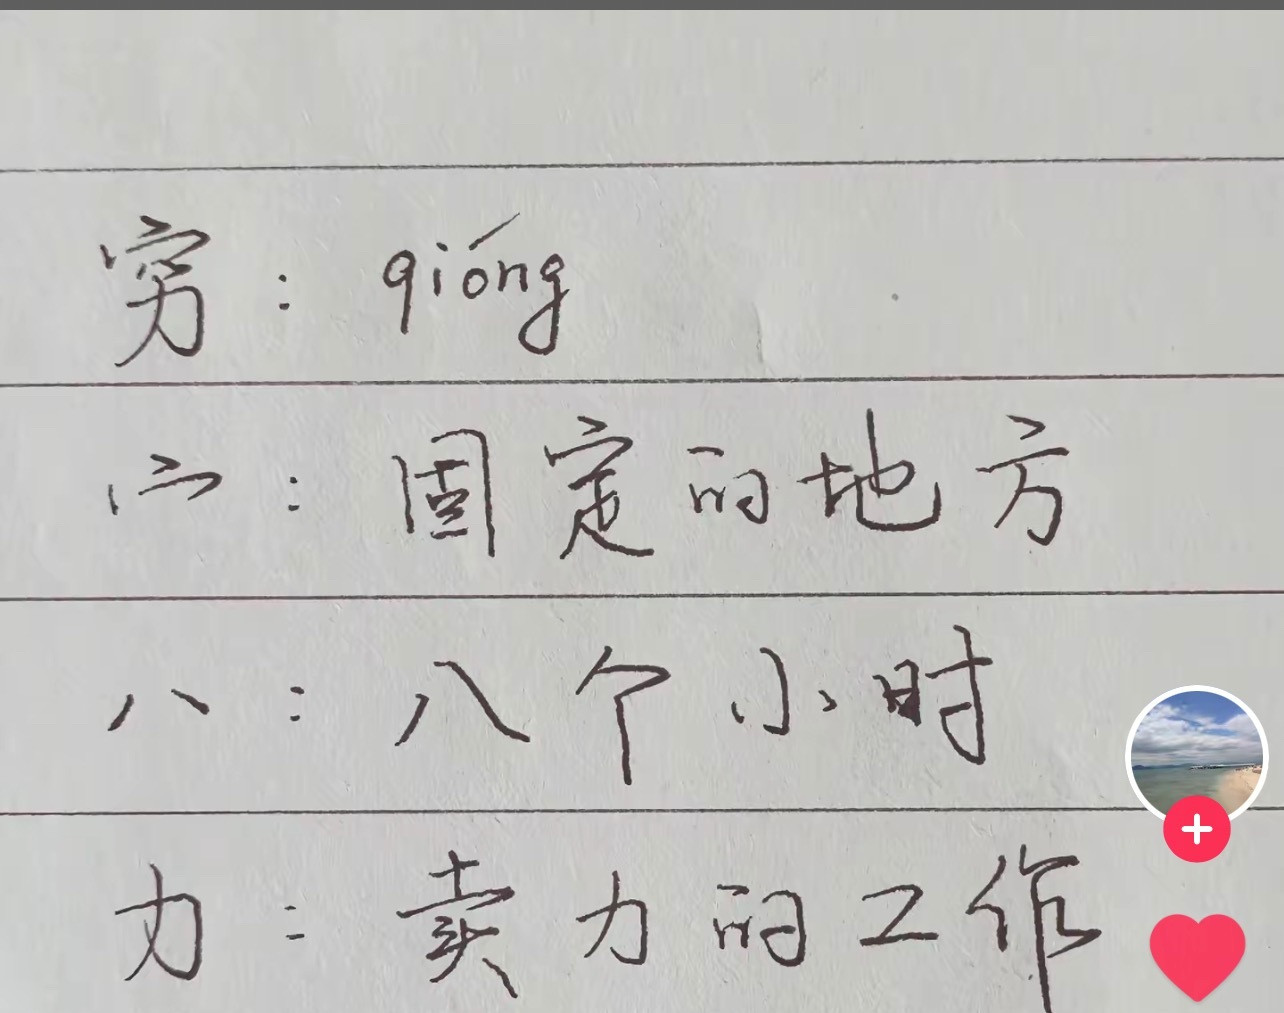 穷：qióng
宀：固定的地方
八：八个小时
力：卖力的工作